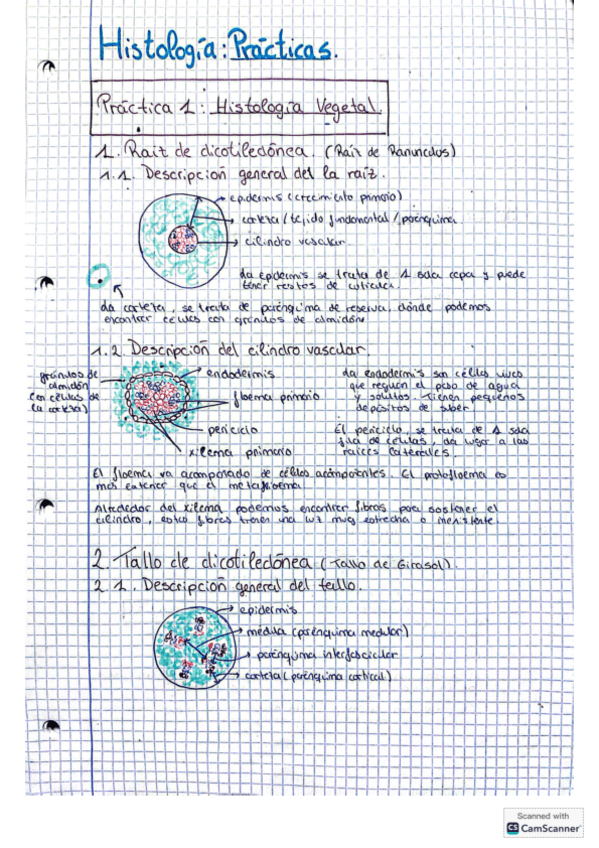 Histología: Prácticas.
Práctica 1: Histología Vegetal.
1. Raíz de dicotiledónea. (Raíz de Ranunculus)
1.1. Descripción general del la raíz.
epidermis (crecimiento primario)
corteza / tejido fundamental / parénquima.
cilindro vascular
La epidermis se trata de 1 sola capa y puede
tener restos de cutícula.
La corteza, se trata de parénquima de reserva, dónde podemos
encontrar células con gránulos de almidón
1.2. Descripción del cilindro vascular.
gránulos de
almidón
(en células de
la corteza)
endodermis
floema primario
periciclo
xilema primario
La endodermis son células vivas
que regulan el paso de agua
y solutos. Tienen pequeños
depósitos de suber
El periciclo, se trata de 1 sola
fila de células, da lugar a las
raíces laterales.
El floema va acompañado de células acompañantes. El protofloema es
más exterior que el metafloema.
Alrededor del xilema podemos encontrar fibras para sostener el
cilindro, estas fibras tienen una luz muy estrecha o inexistente.
2. Tallo de dicotiledónea (Tallo de Girasol).
2.1. Descripción general del tallo.
epidermis
médula (parénquima medular)
parénquima interfascicular
corteza (parénquima cortical)
Scanned with
CS CamScanner